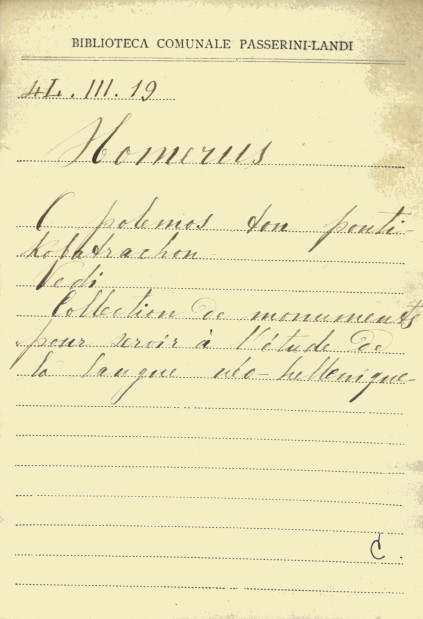 BIBLIOTECA COMUNALE PASSERINI-LANDI
4L. III. 19
Homerus
O polemos ton ponti-
kobatrachon
Vedi
Collection de monuments
pour servir à l'étude de
la langue néo-hellenique-
C.